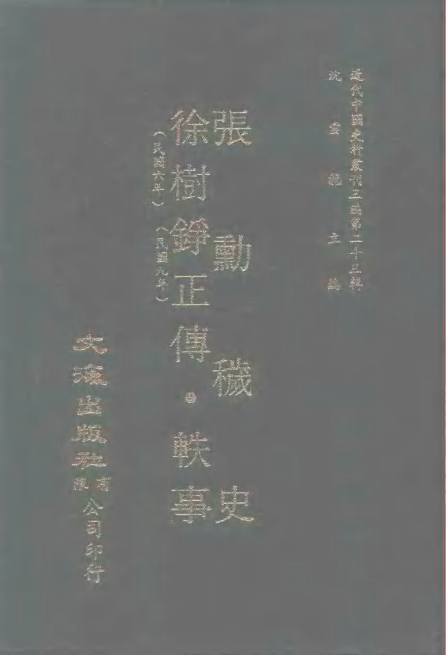 近代中國史料叢刊三編第二十五輯
沈雲龍主編
張勳穢史
徐樹錚正傳・軼事
（民國六年）（民國九年）
文海出版社有限公司印行